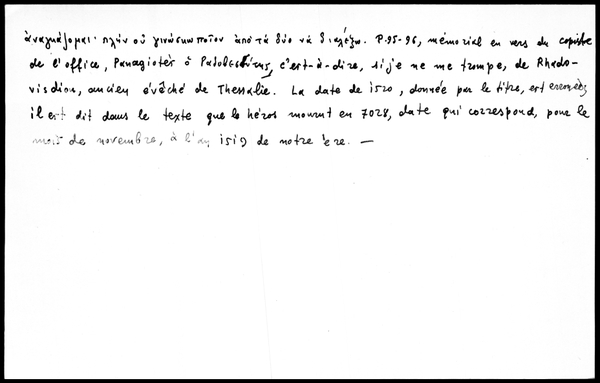 ἀναγκάζομαι· πλὴν οὐ γινώσκω ποῖον ἀπὸ τὰ δύο νὰ διαλέξω. P. 95-96, mémorial en vers du copiste
de l'office, Panagiotès ὁ
c'est-à-dire, si je ne me trompe, de Rhado-
visdion, ancien évêché de Thessalie. La date de 1520, donnée par le titre, est erronée;
il est dit dans le texte que le héros mourut en 7028, date qui correspond, pour le
mois de novembre, à l'an 1519 de notre ère. —